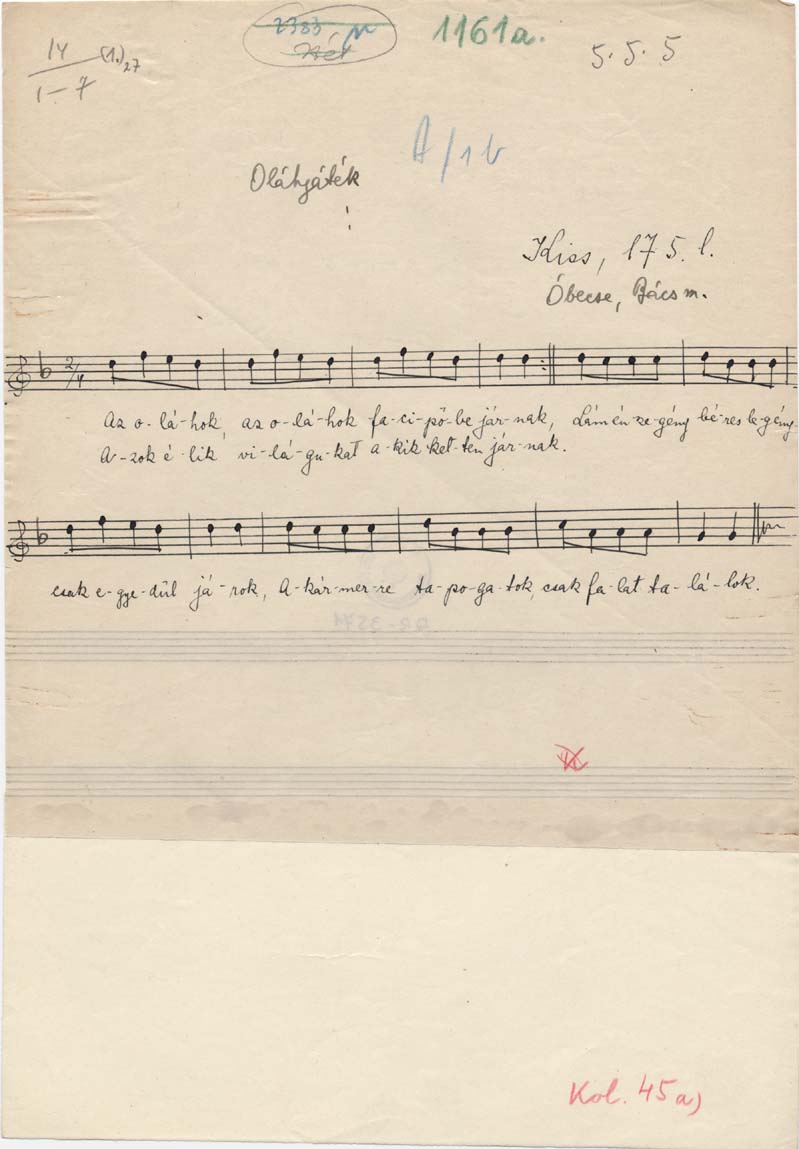 1161a.
5. 5. 5
14 (1.) 27
1-7
A/1b
Oláhjáték
Kiss, 175. l.
Óbecse, Bács m.
2/4
Az o-lá-hok, az o-lá-hok fa-ci-pőbe jár-nak, Lám én sze-gény bé-res le-gény
A-zok é-lik vi-lá-gu-kat a-kik ket-ten jár-nak.
csak e-gye-dül já-rok, A-kár-mer-re ta-po-ga-tok, csak fa-lat ta-lá-lok.
Kol. 45a)